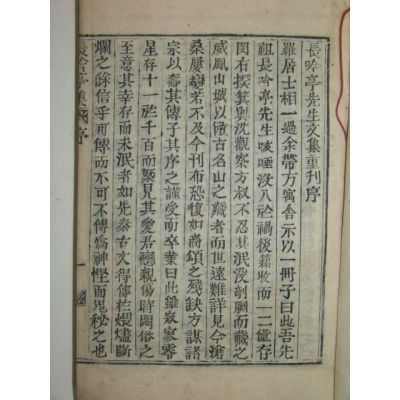 長吟亭先生文集重刊序
羅居士相一過余帶方寓舍示以一冊子曰此吾先
祖長吟亭先生咳唾沒入於禍後籍收而一二僅存
閔有揆箕與沈觀察方叔不忍其泯沒剞劂而藏之
威鳳山城以倣古名山之藏者而世遠難詳見今滄
桑屢變若不及今刊布恐復如商頌之殘缺方謀諸
宗以壽其傳子其序之謹受而卒業曰此雖寂寥零
星存十一於千百而槩見其愛君戀親傷時悶俗之
至意其幸存而未泯者如先秦古文得傳於煨燼斷
爛之餘信乎可傳而不可不傳爲神慳而鬼秘之也
長吟亭集 序 一